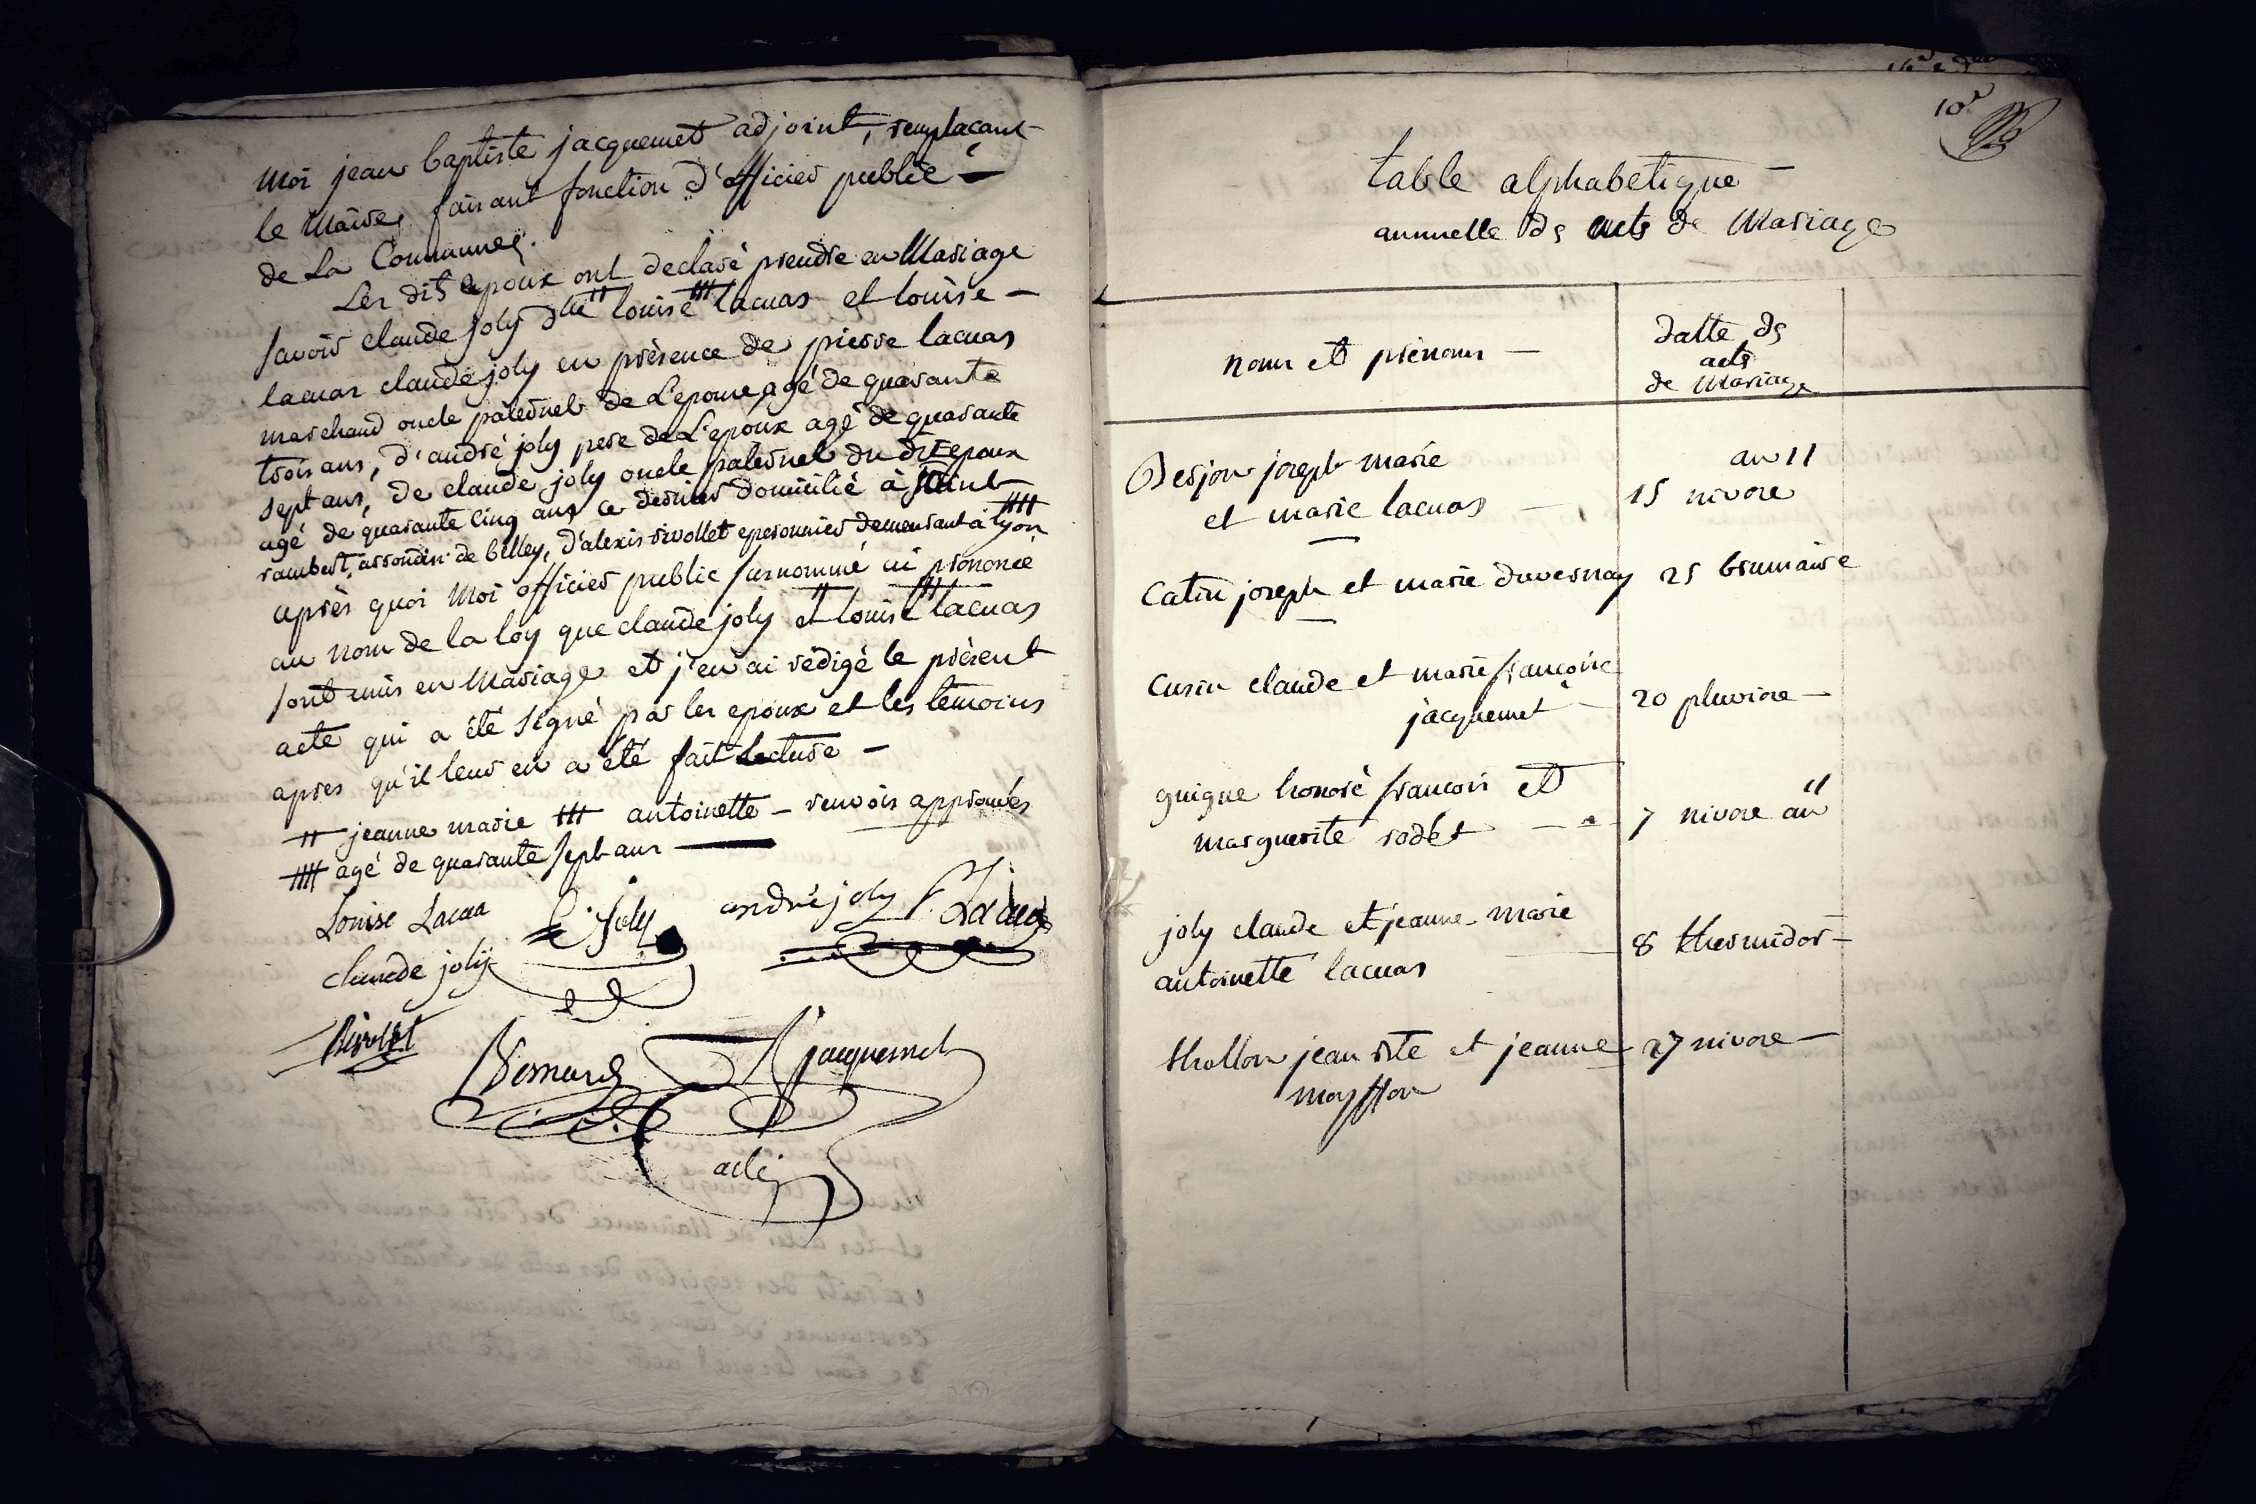 Moi jean baptiste jacquemet adjoint, remplaçant
le Maire, faisant fonction d'officier public —
de la Commune.
Les dits epoux ont declaré prendre en Mariage
savoir claude joly dlle # louise ## lacuas et louise —
lacuas claude joly en présence de pierre lacuas
marchand oncle paternel de L'epouse, agé de quarante
trois ans, d'andré joly pere de L'epoux agé de quarante
sept ans, de claude joly oncle paternel du dit epoux
agé de quarante cinq ans ce dernier domicilié à saint
rambert, arrondisst de belley, d'alexis rivollet eperonnier demeurant à lyon ###
après quoi Moi officier public surnommé ai prononcé
au nom de la loy que claude joly et # louise ## lacuas
sont unis en Mariage et j'en ai rédigé le présent
acte qui a été signé par les epoux et les temoins
apres qu'il leur en a été fait Lecture —
# jeanne marie ## antoinette — renvois approuvés
### agé de quarante sept ans —
Louise Lacua C. joly andré joly P. Lacuas
claude joly
Rivollet Bernard jacquemet
adj
10e
table alphabetique —
annuelle des acts de Mariage
noms et prénoms —
datte des
acts
de Mariage
joseph marie an 11
et marie lacuas — 15 nivose
Catin joseph et marie duvernay 25 brumaire
Cusin claude et marie françoise
jacquemet — 20 pluviose —
guigue honoré françois et
marguerite rodet — 7 nivose an 11
joly claude et jeanne-marie
antoinette lacuas — 8 thermidor —
thollon jean bte et jeanne 27 nivose —
moyffon